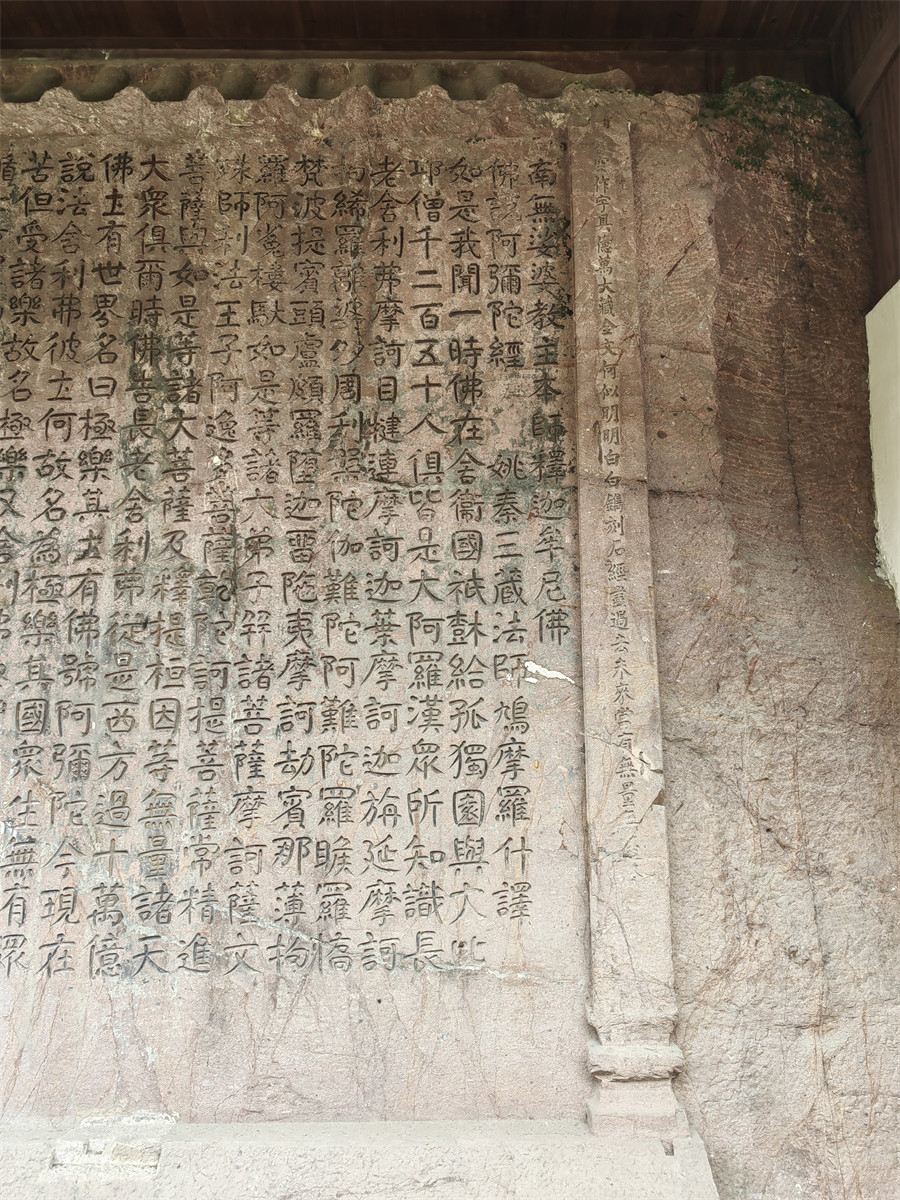 作字具萬大藏全文何似明明白白鐫刻石經過去未來常有無量
南無娑婆教主本師釋迦牟尼佛
佛說阿彌陀經 姚秦三藏法師鳩摩羅什譯
如是我聞一時佛在舍衞國祇樹給孤獨園與大比
邱僧千二百五十人俱皆是大阿羅漢眾所知識長
老舍利弗摩訶目犍連摩訶迦葉摩訶迦旃延摩訶
拘絺羅離婆多周利槃陀伽難陀阿難陀羅睺羅憍
梵波提賓頭盧頗羅墮迦畱陁夷摩訶劫賓那薄拘
羅阿㝹樓馱如是等諸大弟子并諸菩薩摩訶薩文
殊師利法王子阿逸多菩薩乾陀訶提菩薩常精進
菩薩與如是等諸大菩薩及釋提桓因等無量諸天
大眾俱爾時佛告長老舍利弗從是西方過十萬億
佛土有世界名曰極樂其土有佛號阿彌陀今現在
說法舍利弗彼土何故名為極樂其國眾生無有眾
苦但受諸樂故名極樂又舍利弗